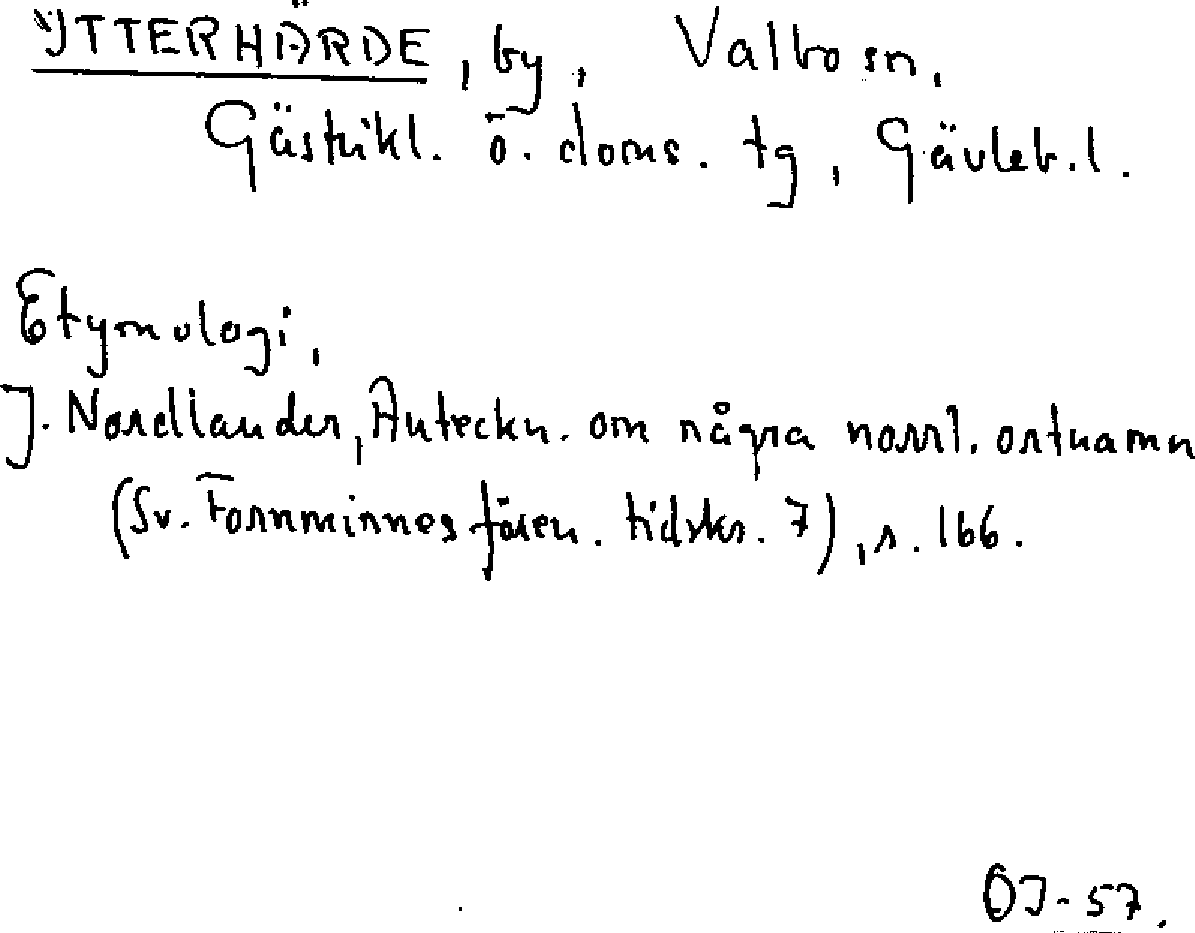 YTTERHÄRDE, by, Valbo sn,
Gästrikl. ö. doms. tg, Gävleb.l.
Etymologi,
J. Nordlander, Anteckn. om några norrl. ortnamn
(Sv. Fornminnesfören. tidskr. 7), s. 166.
ÖJ-57.